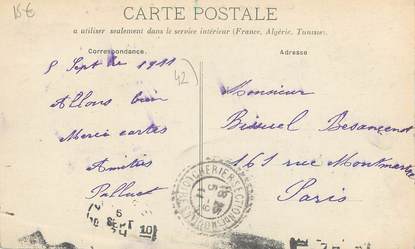 15€
CARTE POSTALE
a utiliser seulement dans le service intérieur (France, Algérie, Tunisie).
Correspondance.
Adresse
5 Sept bre 1911
42
Allons bien
Merci cartes
Amitiés
Palluet
Monsieur
Bissuel Besancenot
161 rue Montmartre
Paris
5
SEPT
10